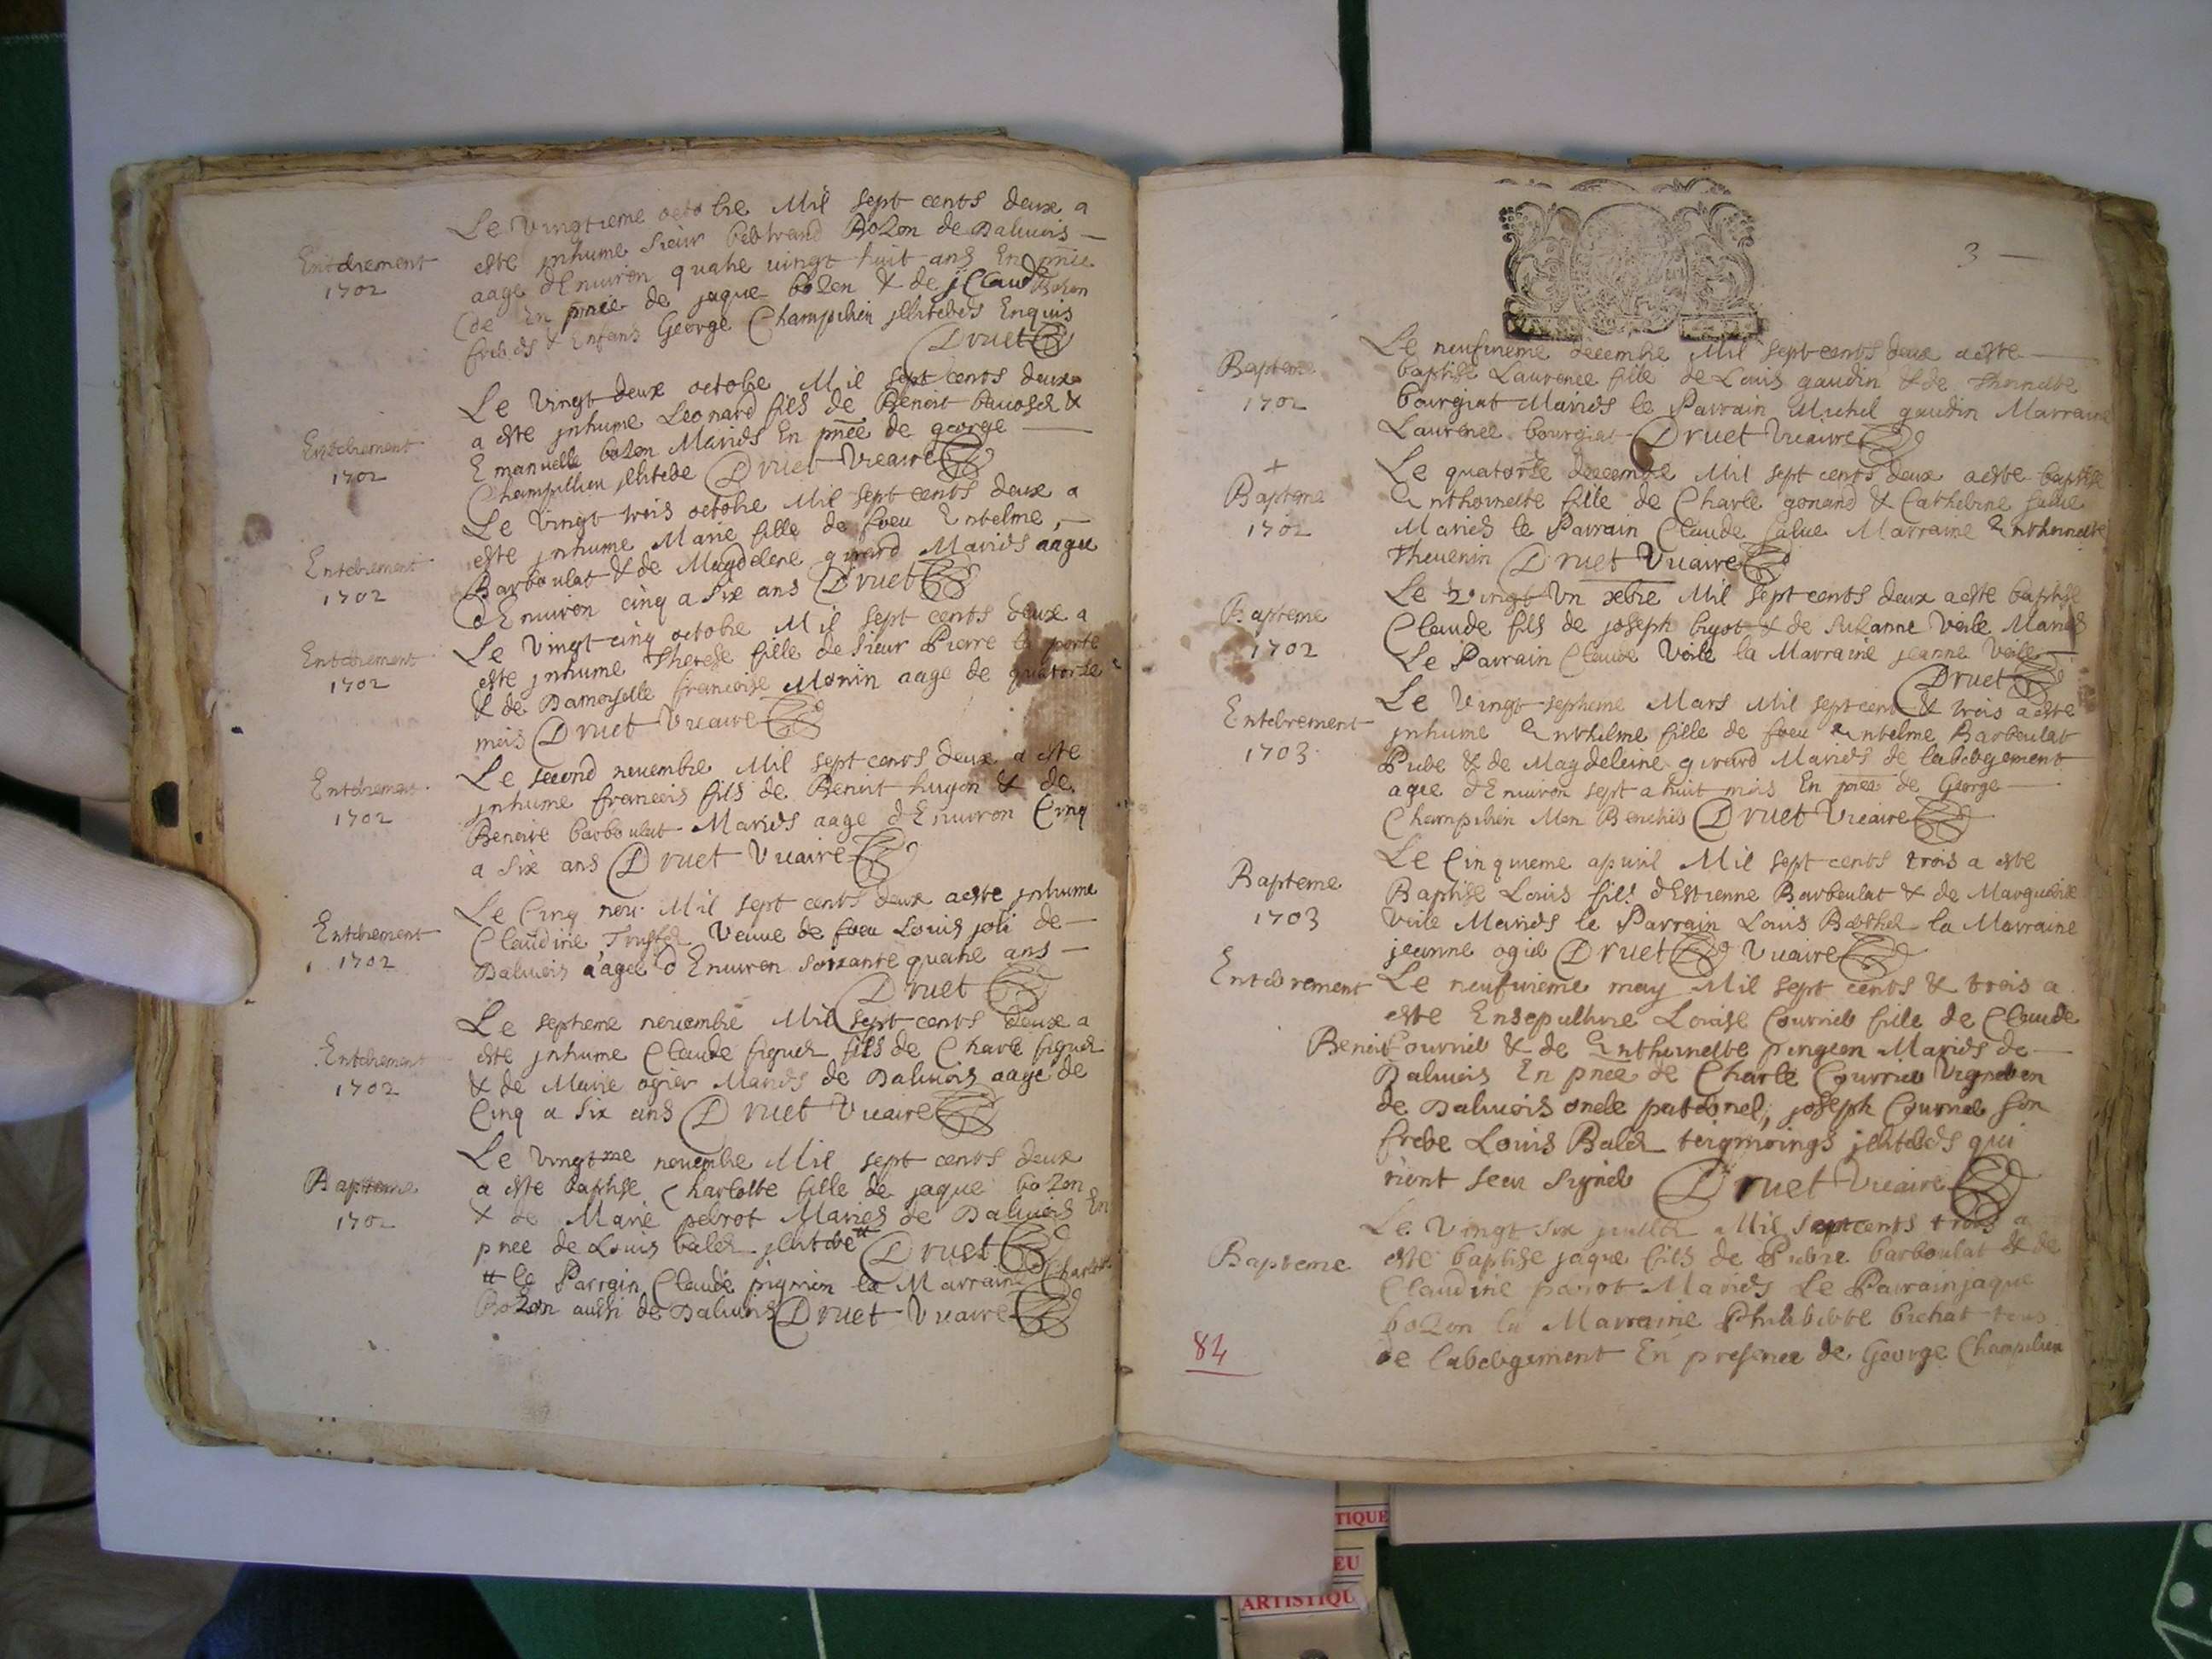 Enterrement
1702
Le vingtieme octobre Mil sept cents deux a
este inhume Sieur Bozon de Dalivois
aage d'Environ quatre vingt huit ans En pnce
de jaque bozon & de Claud Bozon
Enfans George Champilien Enquis
Druet
Enterrement
1702
Le vingt deux octobre Mil sept cents deux
a este inhume Leonard fils de Benoit &
Emanuelle bozon Mariés En pnce de george
Champillien jllitere Druet Vicaire
Enterrement
1702
Le vingt trois octobre Mil sept cents deux a
este inhume Marie fille de feu Antelme
Barboulat & de Magdelene girard Mariés aagee
d'Environ cinq a six ans Druet
Enterrement
1702
Le vingt cinq octobre Mil sept cents deux a
este inhume Therese fille de Sieur Pierre la porte
& de Damoyselle francoise Monin aage de quatorze
mois Druet Vicaire
Enterrement
1702
Le second novembre Mil sept cents deux a este
inhume francois fils de Benoit hugon & de
Benoite barboulat Mariés aage d'Environ Cinq
a six ans Druet Vicaire
Enterrement
1702
Le Cinq nov. Mil sept cents deux a este inhume
Claudine Veuve de feu Louis joli de
Dalivois aagee d'Environ soixante quatre ans
Druet
Enterrement
1702
Le septieme novembre Mil sept cents deux a
este inhume Claude figuet fils de Charle figuet
& de Marie ogier Mariés de Dalivois aage de
Cinq a six ans Druet Vicaire
Bapteme
1702
Le vingtme novembre Mil sept cents deux
a este baptise Charlotte fille de jaque bozon
& de Marie perrot Mariés de Dalivois En
pnce de Louis balet jllitere Druet
le Parrain Claude la Marraine Charlotte
Bozon aussi de Dalivois Druet Vicaire
3
Bapteme
1702
Le neufvieme decembre Mil sept cents deux a este
baptise Laurence fille de Louis gaudin & de Thoinette
bourgiat Mariés le Parrain Michel gaudin Marraine
Laurence bourgiat Druet Vicaire
+
Bapteme
1702
Le quatorze decembre Mil sept cents deux a este baptise
Anthoinette fille de Charle gonand & Catherine salue
Mariés le Parrain Claude salue Marraine Anthoinette
Thevenin Druet Vicaire
Bapteme
1702
Le vingt Un xbre Mil sept cents deux a este baptise
Claude fils de joseph & de Suzanne Veile Mariés
Le Parrain Claude Veile la Marraine jeanne Veile
Druet
Enterrement
1703
Le Vingt septieme Mars Mil sept cent & trois a este
inhume Anthelme fille de feu Antelme Barboulat
& de Magdeleine girard Mariés de labergement
agee d'Environ sept a huit mois En pnce de George
Champilien Druet Vicaire
Bapteme
1703
Le Cinquieme apuril Mil sept cents trois a este
Baptise Louis fils d'Estienne Barboulat & de Marguerite
Veile Mariés le Parrain Louis la Marraine
jeanne ogier Druet Vicaire
Enterrement
Le neufvieme may Mil sept cents & trois a
este Ensepulture Louise Cournier fille de Claude
Benoit Cournier & de Anthoinette pingeon Mariés de
Dalivois En pnce de Charle Cournier Vigneron
de Dalivois oncle paternel, joseph Cournier son
frere Louis Balet teigmoings jlliteres qui
n'ont sceu signer Druet Vicaire
Bapteme
Le vingt six juillet Mil sept cents trois a
este baptise jaque fils de Pierre barboulat & de
Claudine Mariés Le Parrain jaque
bozon la Marraine Philiberte bichat tous
de labergement En presence de George Champilien
84
TIQUE
EU
ARTISTIQU